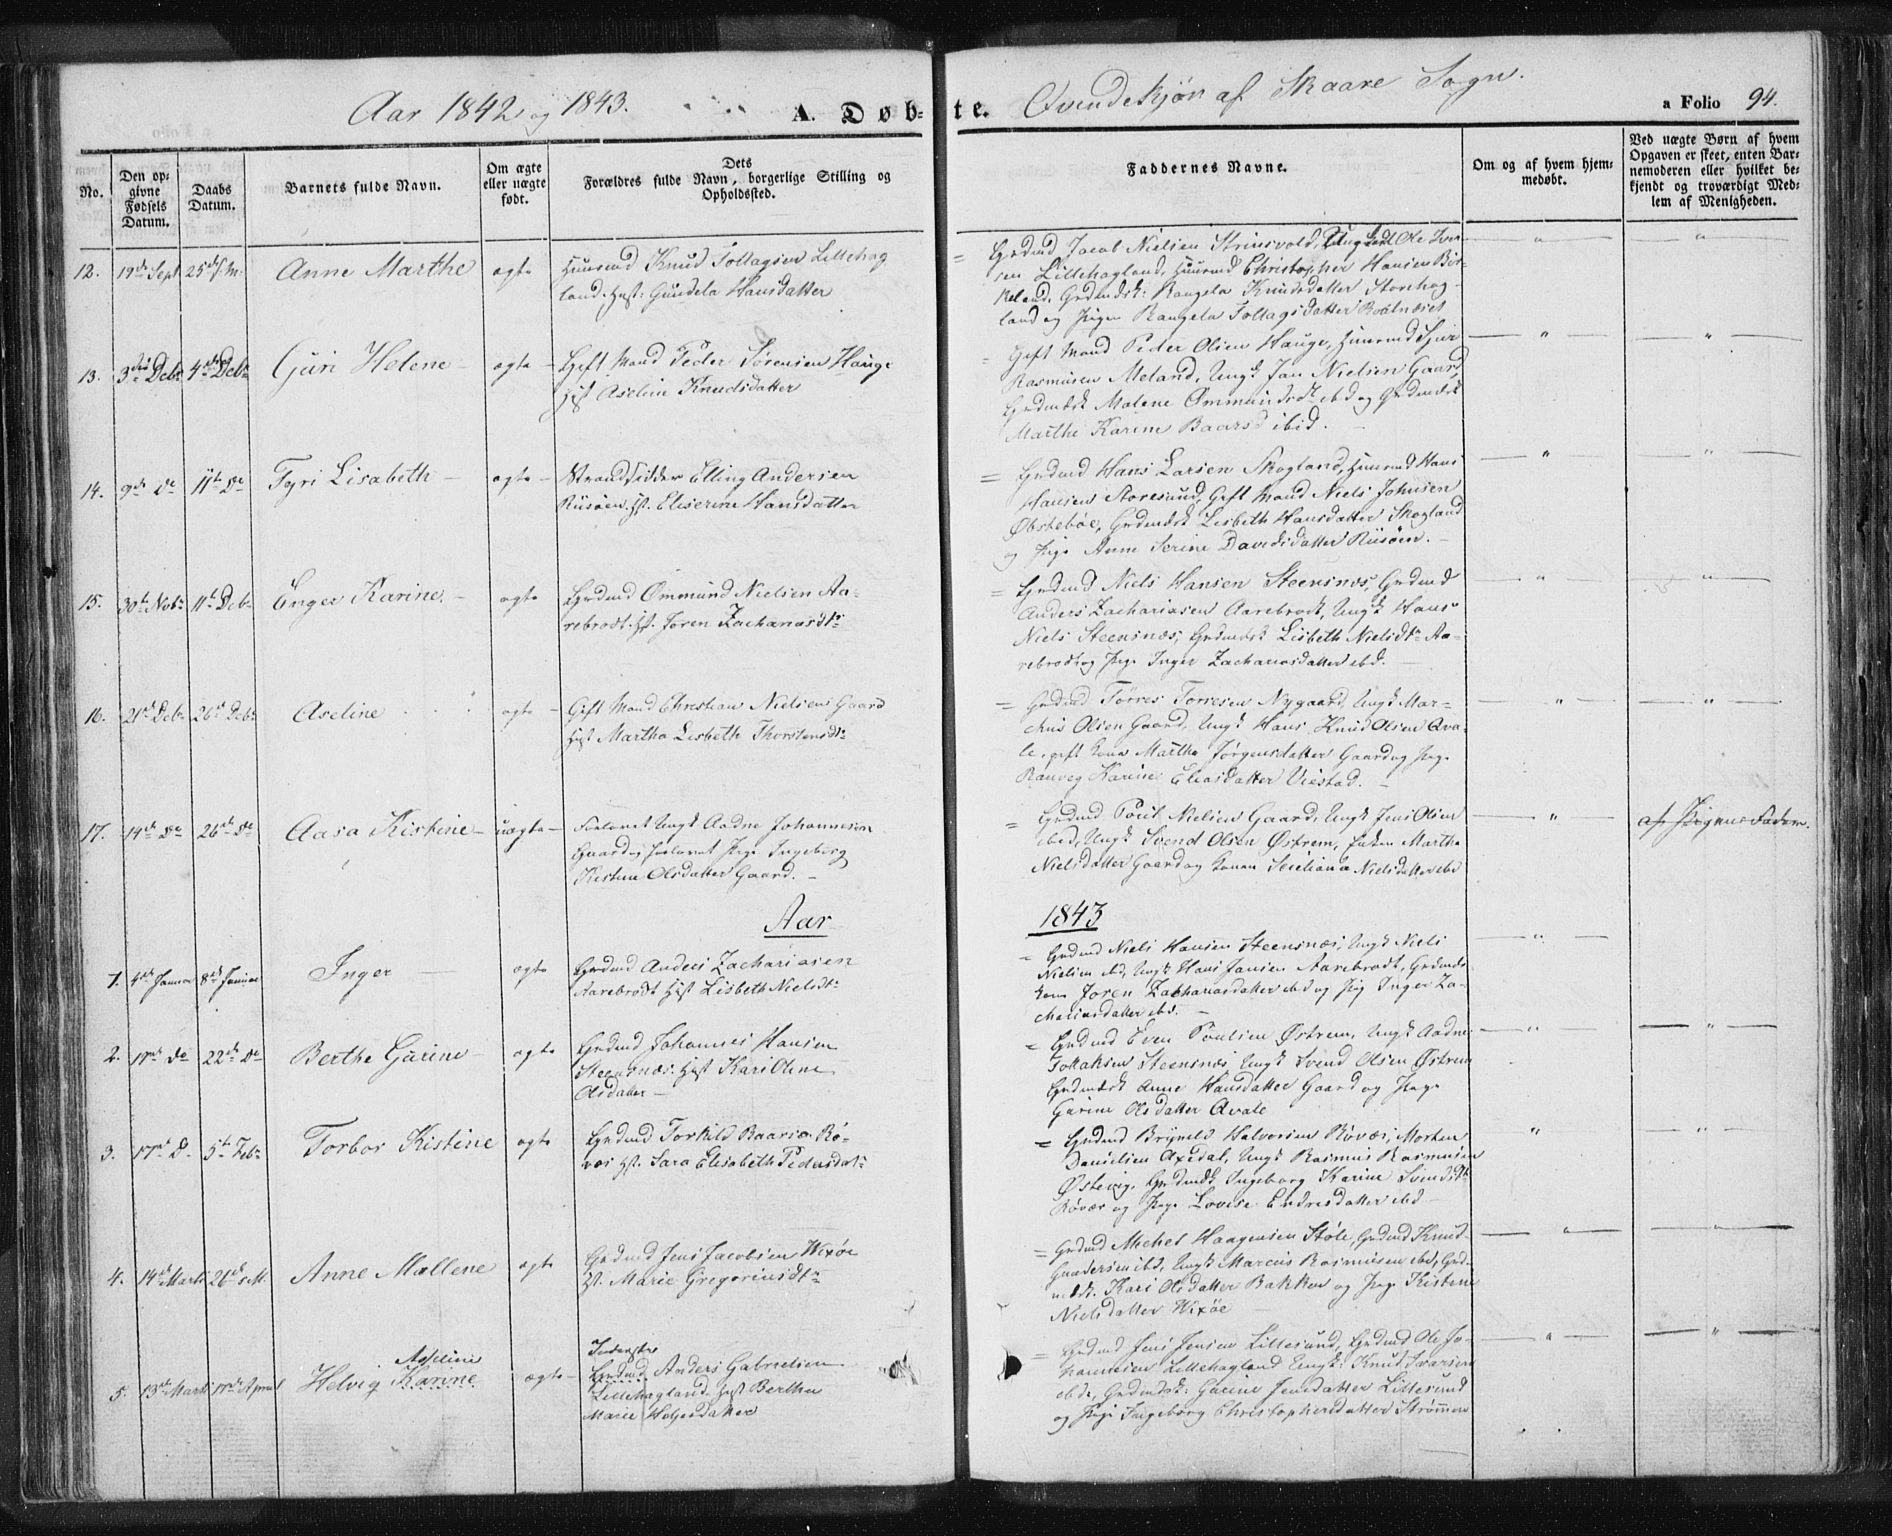 Aar 1842 og 1843.
A. Døbte.
Qvindekjøn af Skaare Sogn.
a Folio 94.
No.
Den opgivne Fødsels Datum.
Daabs Datum.
Barnets fulde Navn.
Om ægte eller uægte født.
Dets Forældres fulde Navn, borgerlige Stilling og Opholdssted.
Faddernes Navne.
Om og af hvem hjemmedøbt.
Ved uægte Børn af hvem Opgaven er skeet, enten Barnemoderen eller hvilket bekjendt og troværdigt Medlem af Menigheden.
12. 19de Sept 25de s. M. Anne Marthe ægte
Huusmd Knud Tollagsen Lillehag
land. Hust: Gundela Hansdatter
Grdmd Jacob Nielsen Ole Iver
sen Lillehagland, Huusmd Christopher Hansen Bir
keland, Grdmdsk: Rangela Knudsdatter Storehag
land og Pigen Rangela Tollagsdatter
13. 3die Debr 4de Debr Guri Helene ægte
Gift Mand Peder Sørensen Hauge
Hust Aseline Knudsdatter
Gift Mand Peder Olsen Hauge, Huusmd Sjur
Rasmusen Meland, Ungk Jan Nielsen Gaard
Grdmdsk Malene Ommundsdt ibd og Grdmdsk
Marthe Karine Baarsd ibid.
14. 9de do 11te do Tyri Lisabeth ægte
Strandsidder Elling Andersen
Risøen. Hst. Eliserine Hansdatter
Grdmd Hans Larsen Skogland, Huusmd Hans
Hansen Storesund, Gift Mand Niels Johnsen
Øbstebøe, Grdmdsk Lisbeth Hansdatter Skogland
og Pige Anne Serine Davidsdatter Risøen.
15. 30te Nobr 11te Debr Enger Karine. ægte
Grdmd Ommund Nielsen Aa-
rebrodt. Hst. Joren Zachariasdtr
Grdmd Niels Hansen Steensnæs, Grdmd
Anders Zachariasen Aarebrodt, Ungk Hans
Niels Steensnæs, Grdmdsk Lisbeth Nielsdtr Aa-
rebrodt og Pige Inger Zachariasdatter ibd.
16. 21de Debr 26de Debr Aseline ægte
Gift Mand Christian Nielsen Gaard
Hust Martha Lisbeth Thorstensdtr
Grdmd Tørres Torresen Nygaard, Ungk Mar-
chus Olsen Gaard, Ungk Hans Knud Olsen Qva-
le, gift Kone Martha Jørgensdatter Gaard og Pige
Ranveg Karine Eliasdatter Viestad.
17. 14de do 26de do Aasa Kistine uægte
Forlovet Ungk Aadne Johannesen
Gaard og forlovet Pige Ingeborg
Kistine Olsdatter Gaard.
Grdmd Poul Nielsen Gaard, Ungk Jens Olsen
ibid, Ungk Svend Olsen Østrem, Enken Martha
Nielsdatter Gaard og Konen Siciliana Nielsdatter ibd
af Pigens Fader.
Aar 1843
1. 4de Januar 8de Januar Inger ægte
Grdmd Anders Zachariasen
Aarebrodt Hust Lisbeth Nielsdtr
Grdmd Niels Hansen Steensnæs, Ungk Niels
Nielsen ibd, Ungk Hans Jansen Aarebrodt, Grdmds
kone Joren Zachariasdatter ibd og Pig Inger Za-
chariasdatter ibd.
2. do 22de do Berthe Gurine ægte
Grdmd Johannes Hansen
Steensnæs. Hust Kari Oline
Olsdatter
Grdmd Even Poulsen Østrem, Ungk Aadne
Tollaksen Steensnæs, Ungk Svend Olsen Østrem
Grdmdsk Anne Hansdatter Gaard og Pige
Gurine Olsdatter Qvale
3. 17de D. 5te Febr Torbor Kistine ægte
Grdmd Torkild Baarsen Rø-
vær Hst. Sara Elisabeth Pedersdatr
Grdmd Brynild Halvorsen Røvær, Morten
Danielsen Axedal, Ungk Rasmus Rasmusen
Østevig, Grdmdsk Ingeborg Karine Svendsdt
Røvær og Pige Lovise Endresdatter ibd
4. 14de Marts 26de s. M. Anne Mallene ægte
Grdmd Jens Jacobsen Wixøe
Hst. Marie Gregoriusdtr
Grdmd Michel Haagensen Støle, Grdmd Knud
Gundersen ibd, Ungk Marcus Rasmusen ibd, Grd-
mdsk. Kari Olsdatter Bakken og Pige Kistene
Nielsdatter Wixøe
5. 13de Marts 17de April Helvig Karine Aseline ægte
Inderste
Grdmd Anders Gabrielsen
Lillehagland. Hust Berthe
Marie Holjesdatter
Grdmd Jens Jensen Lillesund, Grdmd Ole Jo-
hannesen Lillehagland Ungk: Knud Ivarsen
ibde, Grdmdsk: Gurine Jensdatter Lillesund
og Pige Ingeborg Christophersdatter Strømen